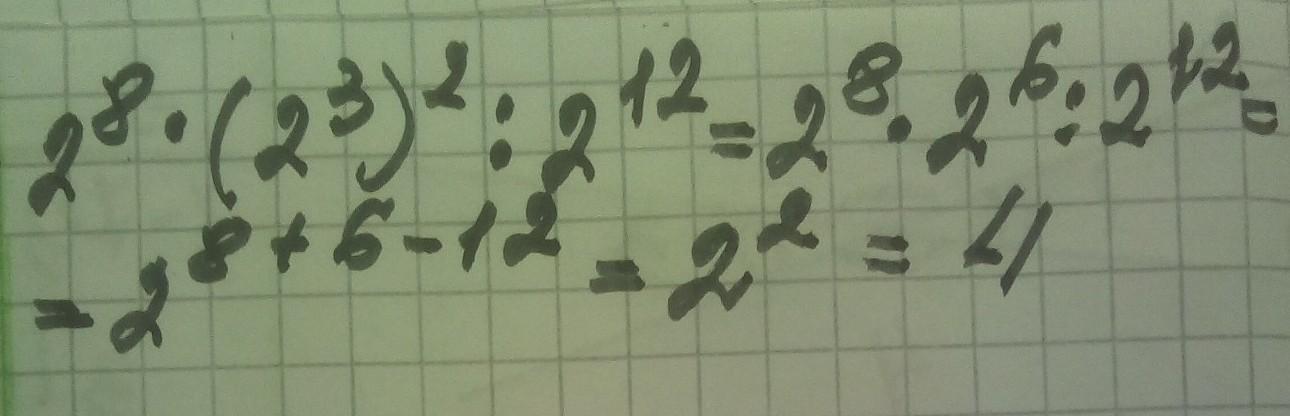 2⁸·(2³)²:2¹²=2⁸·2⁶:2¹²=
=2⁸⁺⁶⁻¹²=2²=4